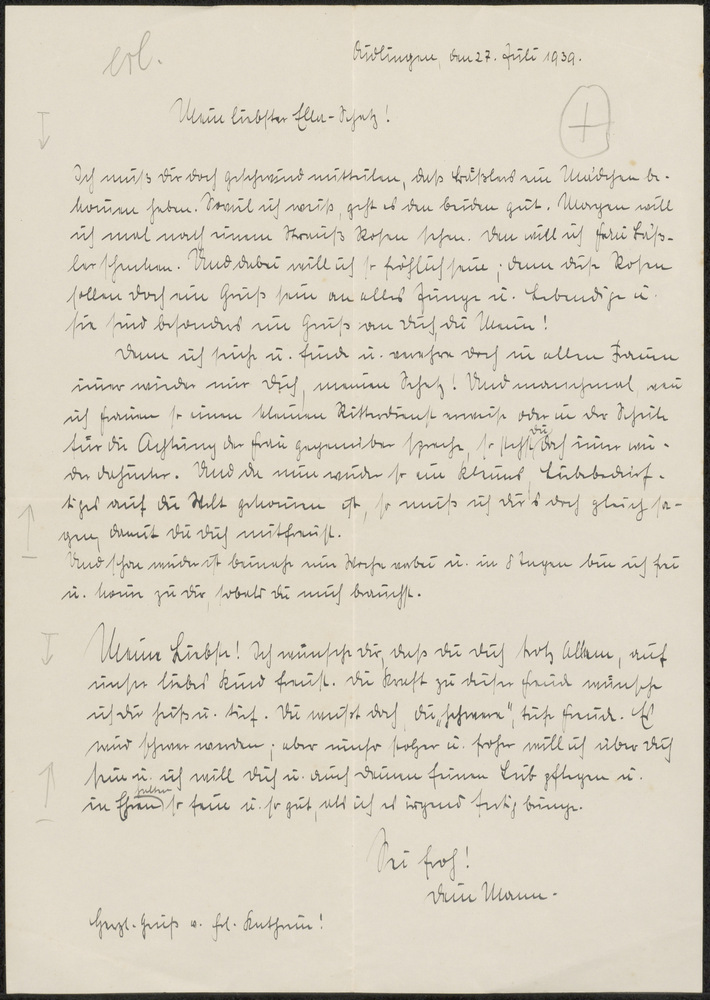 erl.
Aidlingen, den 27. Juli 1939.
Mein liebster Ella-Schatz!
Ich muß Dir doch geschwind mitteilen, daß Häßlers ein Mädchen be-
kommen haben. Soviel ich weiß, geht es den beiden gut. Morgen will
ich mal nach einem Strauß Rosen sehen. Den will ich Frau Häß-
ler schenken. Und dabei will ich so fröhlich sein; denn diese Rosen
sollen doch ein Gruß sein an alles Junge u. Lebendige u.
sie sind besonders ein Gruß an Dich, Du Meine!
Denn ich suche u. finde u. verehre doch in allen Frauen
immer wieder nur Dich, meinen Schatz! Und manchmal, wenn
ich Frauen so einen kleinen Ritterdienst erweise oder in der Schule
für die Achtung der Frau gegenüber spreche, so stehst Du doch immer wie-
der dahinter. Und da nun wieder so ein kleines, liebebedürf-
tiges auf die Welt gekommen ist, so muß ich Dir's doch gleich sa-
gen, damit Du Dich mitfreust.
Und schon wieder ist beinahe eine Woche vorbei u. in 8 Tagen bin ich frei
u. komm zu Dir, sobald Du mich brauchst.
Meine Liebste! Ich wünsche Dir, daß Du Dich trotz Allem, auf
unser liebes Kind freust. Die Kraft zu dieser Freude wünsche
ich Dir heiß u. tief. Du weißt doch, die "schwere", tiefe Freude. Es
wird schwer werden; aber umso stolzer u. froher will ich über Dich
sein u. ich will Dich u. auch Deinen feinen Leib pflegen u.
in Ehren halten so fein u. so gut, als ich es irgend fertig bringe.
Sei froh!
Dein Mann.
Herzl. Gruß v. Frl. Kathrein!